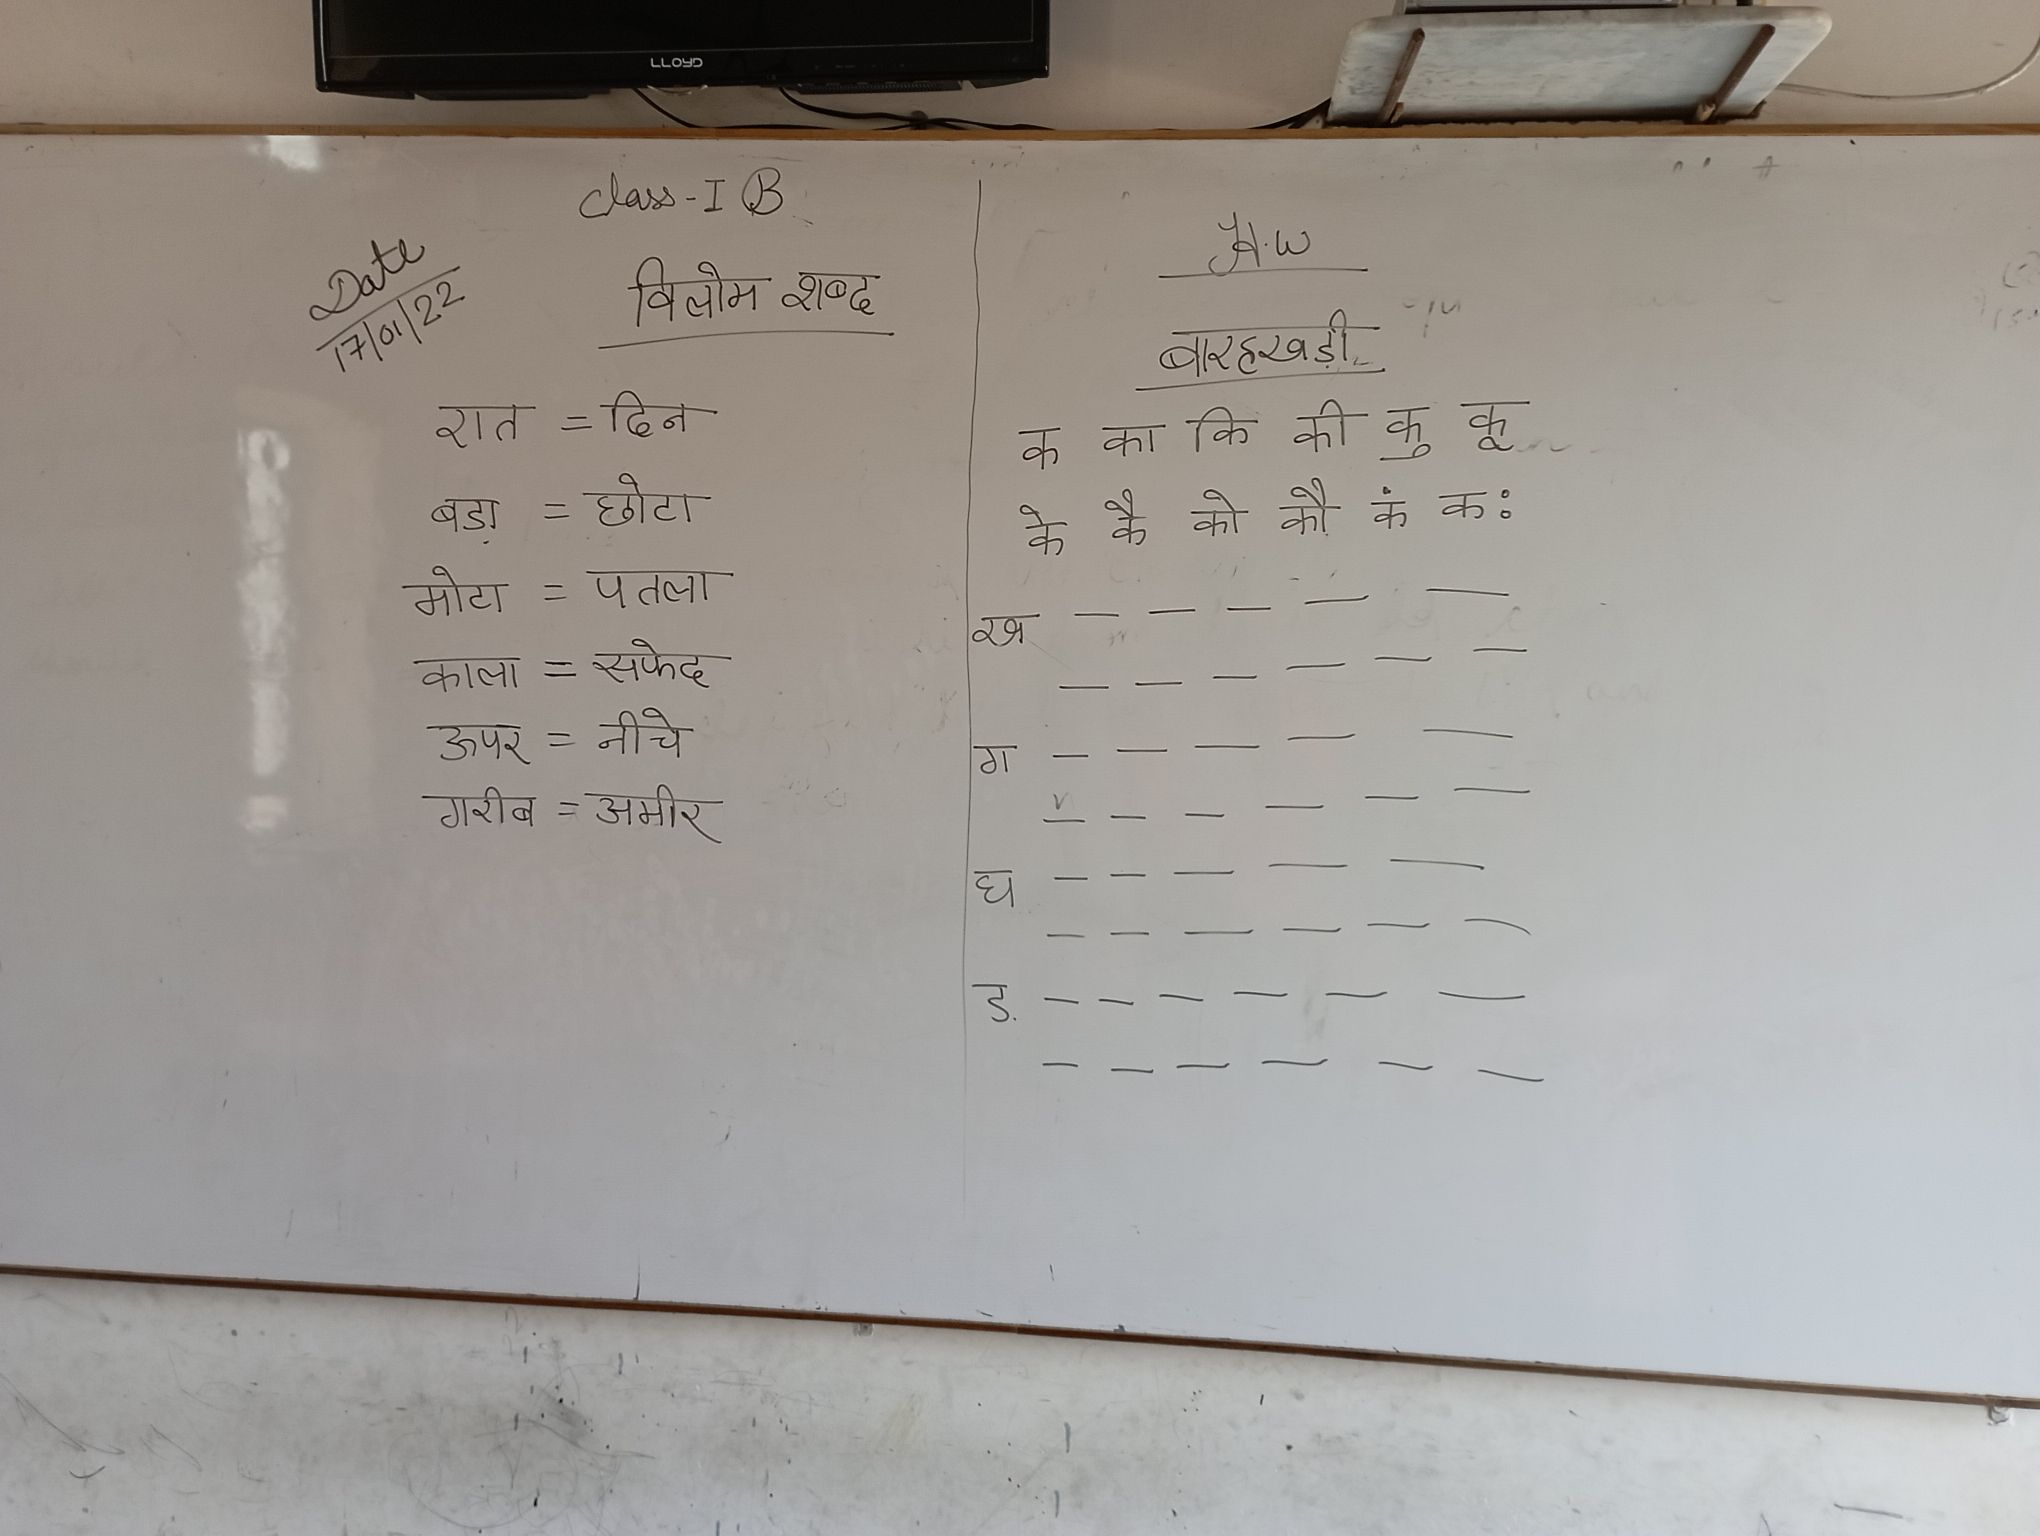 LLOYD
Class-I B
Date
17/01/22
विलोम शब्द
रात = दिन
बड़ा = छोटा
मोटा = पतला
काला = सफेद
ऊपर = नीचे
गरीब = अमीर
H.W
बारहखड़ी
क का कि की कु कू
के कै को कौ कं कः
ख — — — — —
— — — — — —
ग — — — — —
— — — — — —
घ — — — — —
— — — — — —
ड. — — — — — —
— — — — — —